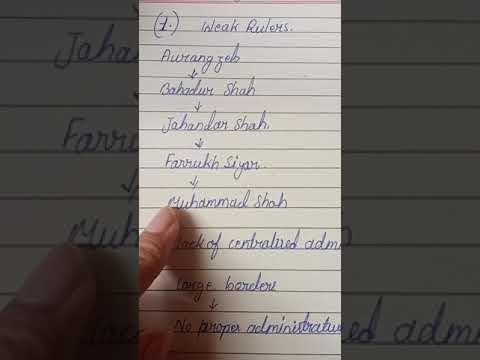 (1.) Weak Rulers.
Aurangzeb
↓
Bahadur Shah
↓
Jahandar Shah.
↓
Farrukh Siyar.
↓
Muhammad Shah
lack of centralised adm
large borders
↓
No proper administrative